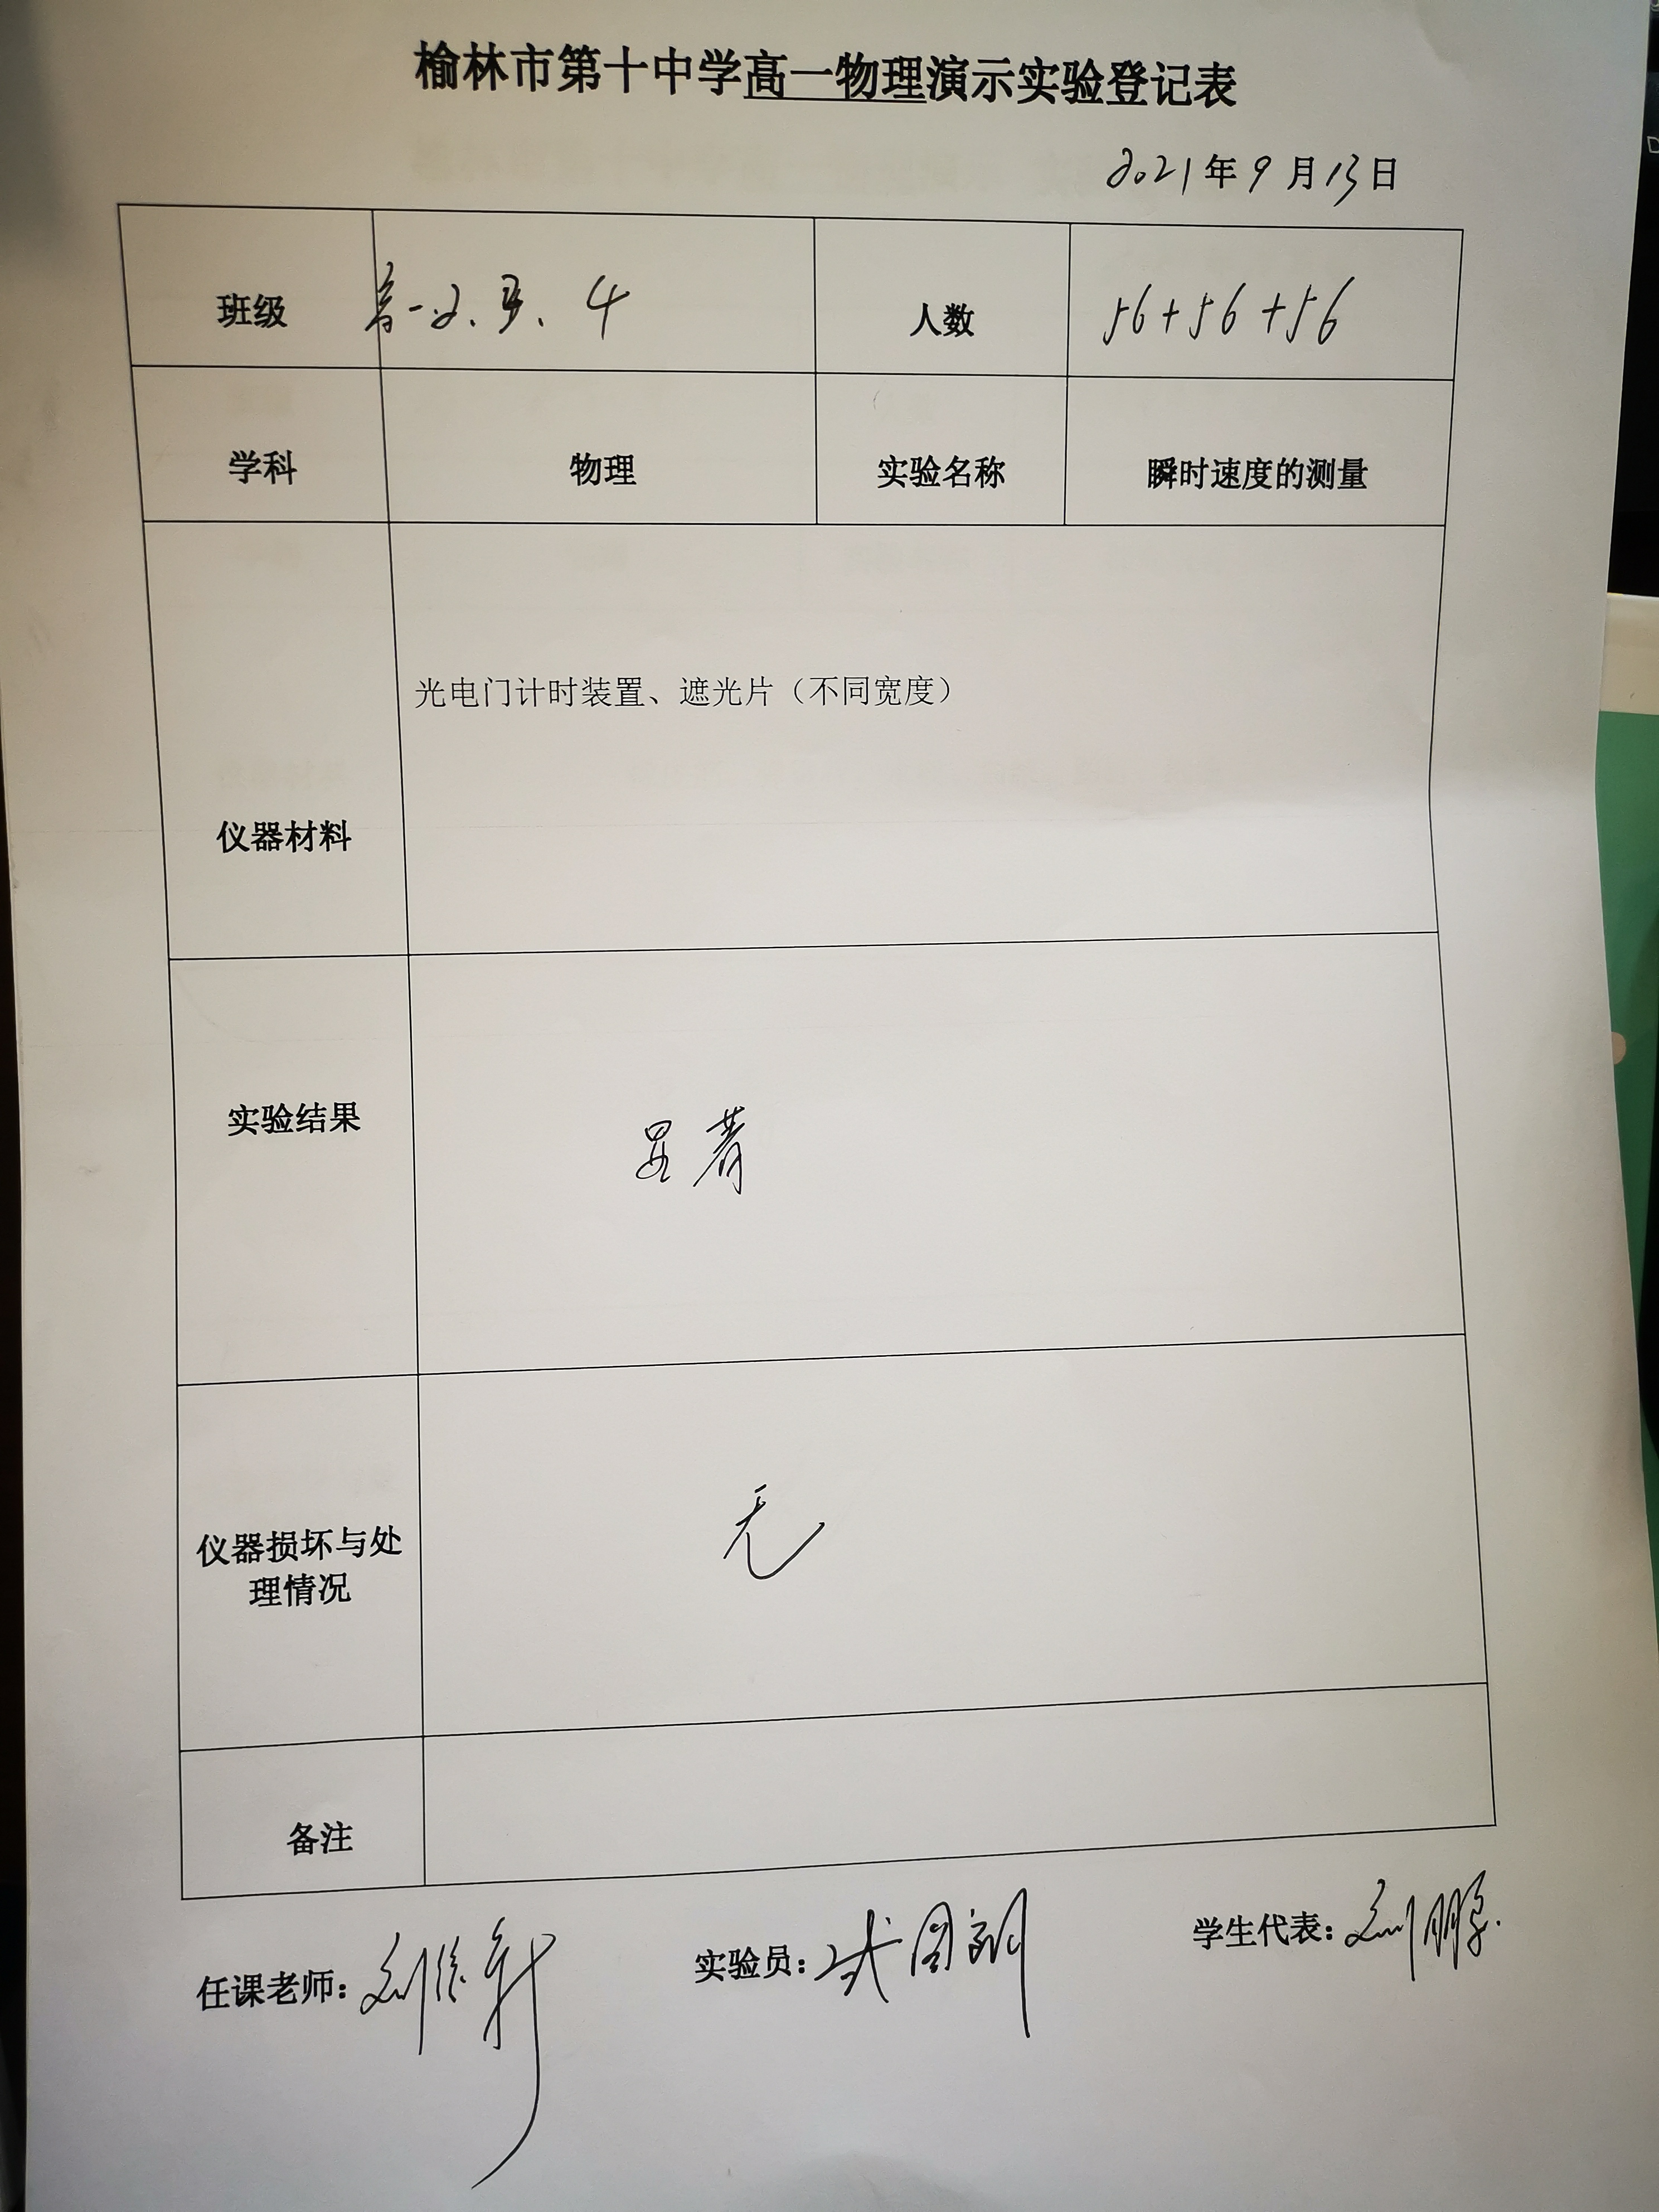 榆林市第十中学高一物理演示实验登记表
2021年9月13日
班级 高一2、3、4 人数 56+56+56
学科 物理 实验名称 瞬时速度的测量
光电门计时装置、遮光片（不同宽度）
仪器材料
实验结果 显著
仪器损坏与处理情况 无
备注
任课老师：刘
实验员：
学生代表：刘鹏